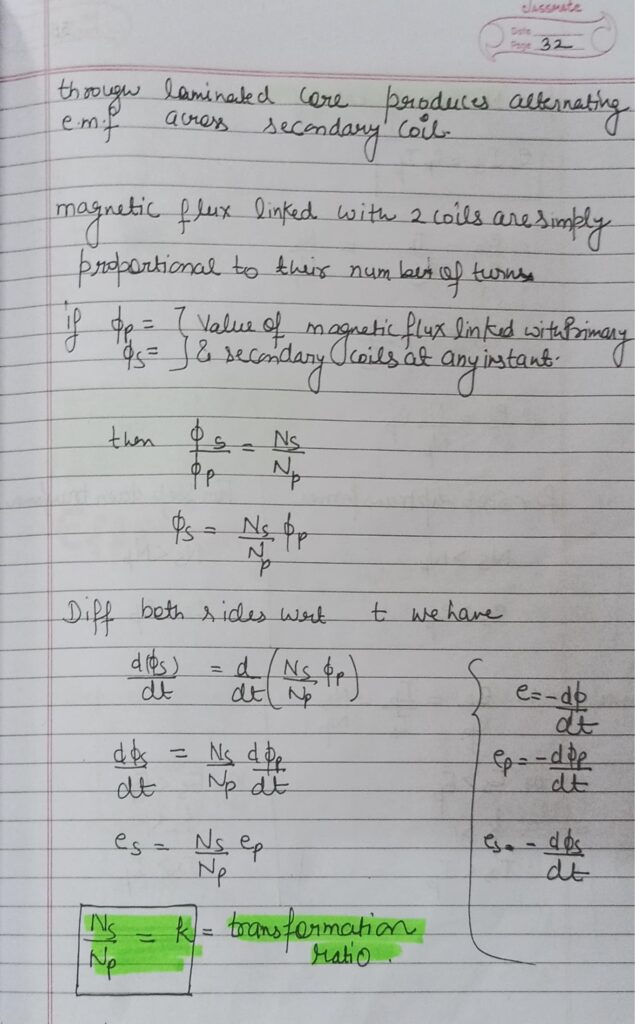 classmate
Date
Page 32
through laminated core produces alternating
e.m.f across secondary coil.
magnetic flux linked with 2 coils are simply
proportional to their number of turns
if ϕp = } Value of magnetic flux linked with Primary
ϕs = } & secondary coils at any instant.
then ϕs/ϕp = Ns/Np
ϕs = Ns/Np ϕp
Diff both sides wrt t we have
d(ϕs)/dt = d/dt (Ns/Np ϕp)
dϕs/dt = Ns/Np dϕp/dt
es = Ns/Np ep
Ns/Np = k = transformation
ratio.
e = -dϕ/dt
ep = -dϕp/dt
es = -dϕs/dt